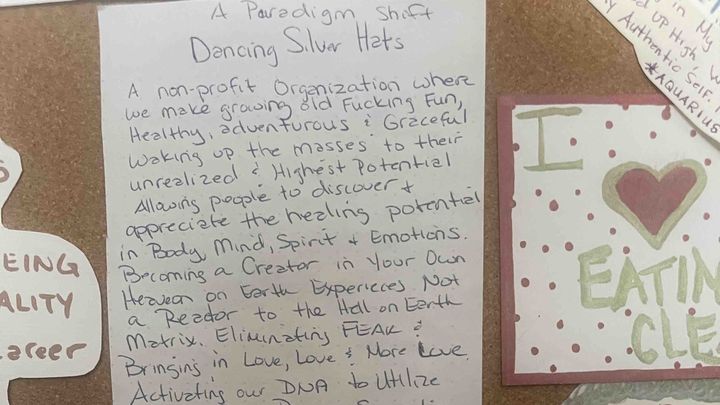 A Paradigm Shift
Dancing Silver Hats
A non-profit Organization where
we make growing old Fucking Fun,
Healthy, adventurous & Graceful
Waking up the masses to their
unrealized & Highest Potential
Allowing people to discover +
appreciate the healing potential
in Body, Mind, Spirit + Emotions.
Becoming a Creator in Your Own
Heaven on Earth Experiences Not
a Reactor to the Hell on Earth
Matrix. Eliminating FEAR &
Bringing in Love, Love & More Love.
Activating our DNA to Utilize
EING
ALITY
areer
I
EATIN
CLE
in My
UP High
Authentic Self.
*AQUARIUS